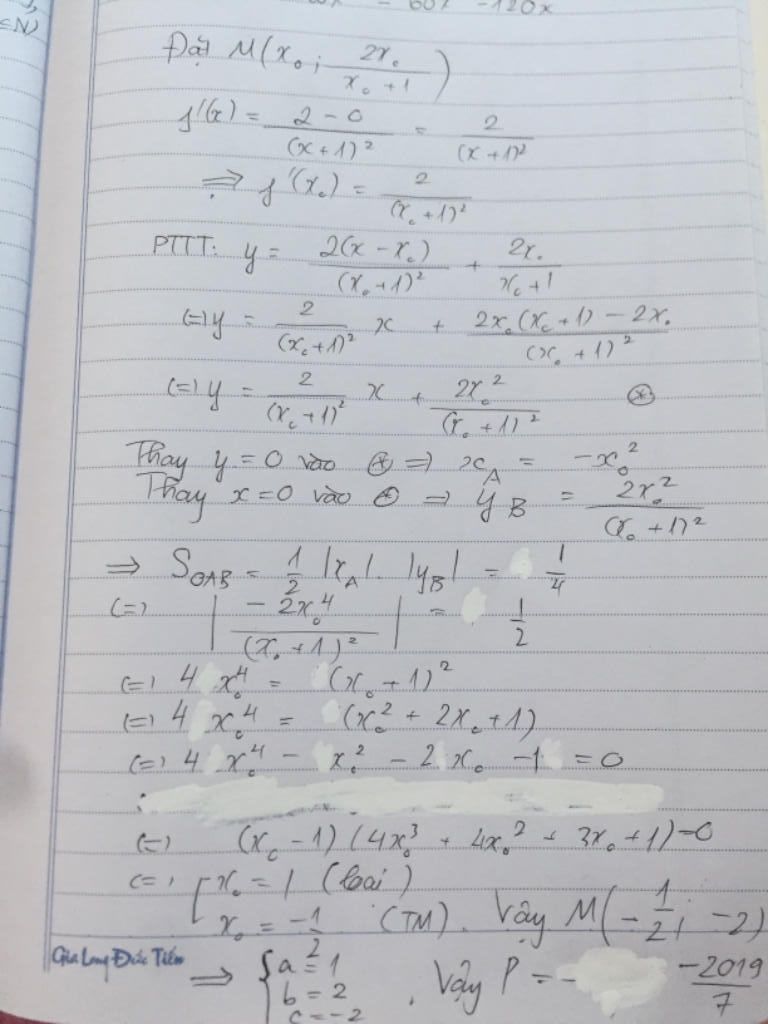 - 60x - 120x
∈N)
Đặt M(x₀; 2x₀/(x₀+1))
f'(x) = (2-0)/(x+1)² = 2/(x+1)²
⇒ f'(x₀) = 2/(x₀+1)²
PTTT: y = 2(x-x₀)/(x₀+1)² + 2x₀/(x₀+1)
(=) y = 2/(x₀+1)² x + (2x₀(x₀+1) - 2x₀)/(x₀+1)²
(=) y = 2/(x₀+1)² x + 2x₀²/(x₀+1)² ⊛
Thay y=0 vào ⊛ ⇒ x_A = -x₀²
Thay x=0 vào ⊛ ⇒ y_B = 2x₀²/(x₀+1)²
⇒ S_OAB = 1/2 |x_A|. |y_B| = 1/4
(=) |-2x₀⁴/(x₀+1)²| = 1/2
(=) 4 x₀⁴ = (x₀+1)²
(=) 4 x₀⁴ = (x₀² + 2x₀ + 1)
(=) 4 x₀⁴ - x₀² - 2 x₀ - 1 = 0
(=) (x₀-1)(4x₀³ + 4x₀² + 3x₀ + 1)=0
(=) [x₀ = 1 (loại)
x₀ = -1/2 (TM). Vậy M(-1/2; -2)
Gia Long Đức Tiến
⇒ {a = 1
b = 2 . Vậy P = - -2019/7
c = -2